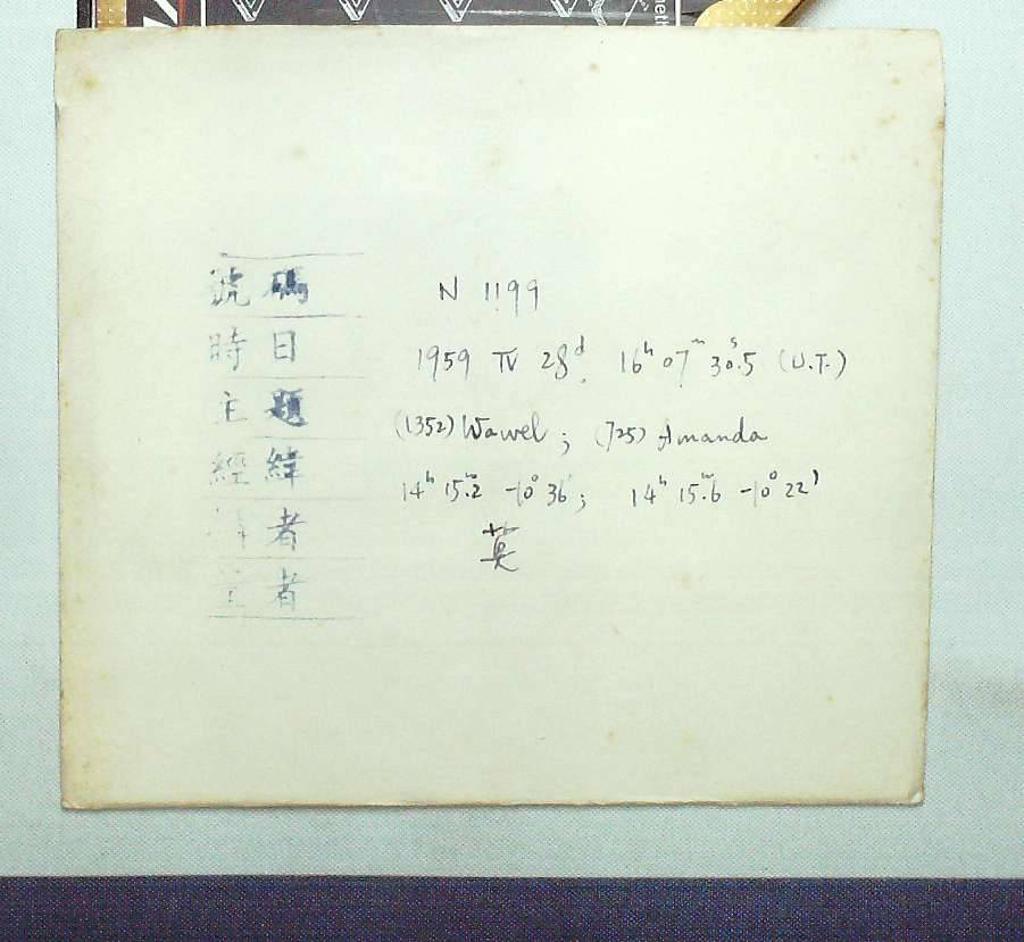 號碼 N 1199
時日 1959 IV 28ᵈ. 16ʰ 07ᵐ 30ˢ.5 (U.T.)
主題 (1352) Wawel ; (725) Amanda
經緯 14ʰ 15ᵐ.2 -10° 36' ; 14ʰ 15ᵐ.6 -10° 22'
者 英
者